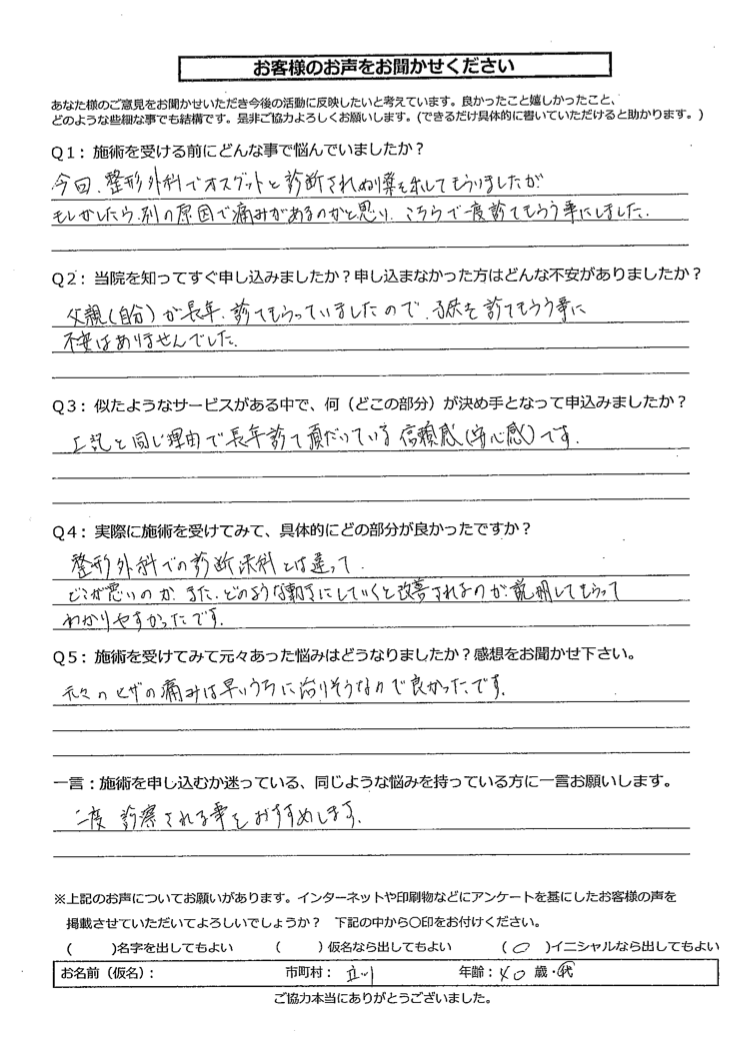 お客様のお声をお聞かせください
あなた様のご意見をお聞かせいただき今後の活動に反映したいと考えています。良かったこと嬉しかったこと、
どのような些細な事でも結構です。是非ご協力よろしくお願いします。(できるだけ具体的に書いていただけると助かります。)
Q1：施術を受ける前にどんな事で悩んでいましたか？
今回、整形外科でオスグットと診断されぬり薬を出してもらいましたが
もしかしたら、別の原因で痛みがあるのかと思い、こちらで一度診てもらう事にしました。
Q2：当院を知ってすぐ申し込みましたか？申し込まなかった方はどんな不安がありましたか？
父親(自分)が長年、診てもらっていましたので、子供を診てもらう事に
不安はありませんでした。
Q3：似たようなサービスがある中で、何（どこの部分）が決め手となって申込みましたか？
上記と同じ理由で長年診て頂だいている信頼感(安心感)です。
Q4：実際に施術を受けてみて、具体的にどの部分が良かったですか？
整形外科での診断 とは違って、
どこが悪いのか、また、どのような動きにしていくと改善されるのか、説明してもらって
わかりやすかったです。
Q5：施術を受けてみて元々あった悩みはどうなりましたか？感想をお聞かせ下さい。
元々のヒザの痛みは早いうちに治りそうなので良かったです。
一言：施術を申し込むか迷っている、同じような悩みを持っている方に一言お願いします。
一度 診察される事をおすすめします。
※上記のお声についてお願いがあります。インターネットや印刷物などにアンケートを基にしたお客様の声を
掲載させていただいてよろしいでしょうか？ 下記の中から〇印をお付けください。
(　　)名字を出してもよい　(　　)仮名なら出してもよい　(〇)イニシャルなら出してもよい
お名前（仮名）：　市町村：立川　年齢：40 歳・代
ご協力本当にありがとうございました。